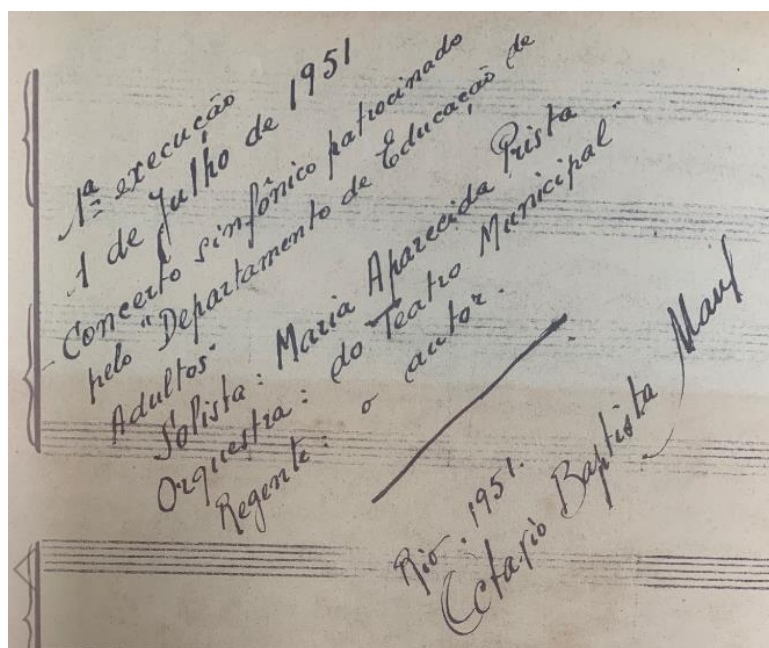 1ª execução
1 de Julho de 1951
Concerto sinfônico patrocinado
pelo "Departamento de Educação de
Adultos"
Solista: Maria Aparecida Prista
Orquestra: do Teatro Municipal"
Regente: o autor.
Rio. 1951.
Octavio Baptista Maul